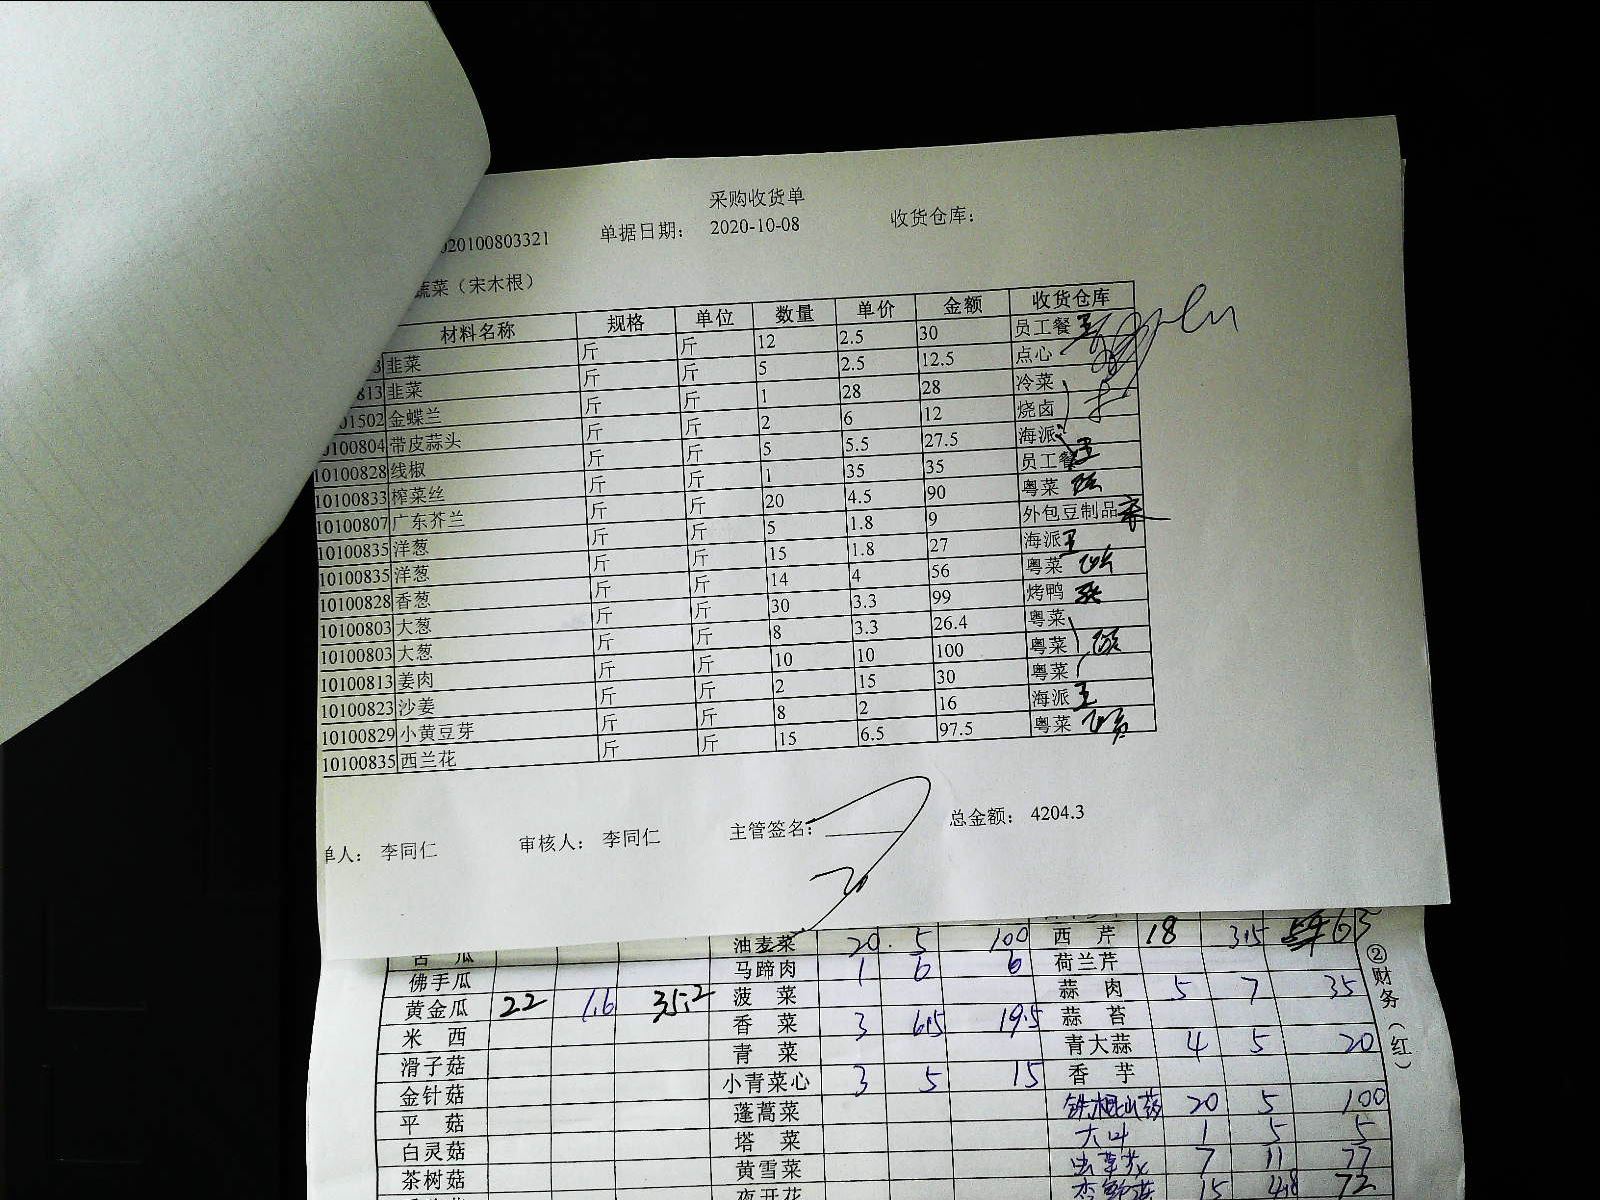 采购收货单
020100803321 单据日期： 2020-10-08 收货仓库：
蔬菜（宋木根）
材料名称 规格 单位 数量 单价 金额 收货仓库
3 韭菜 斤 斤 12 2.5 30 员工餐 王
813 韭菜 斤 斤 5 2.5 12.5 点心
01502 金蝶兰 斤 斤 1 28 28 冷菜
0100804 带皮蒜头 斤 斤 2 6 12 烧卤
10100828 线椒 斤 斤 5 5.5 27.5 海派
10100833 榨菜丝 斤 斤 1 35 35 员工餐 王
10100807 广东芥兰 斤 斤 20 4.5 90 粤菜
10100835 洋葱 斤 斤 5 1.8 9 外包豆制品
10100835 洋葱 斤 斤 15 1.8 27 海派 王
10100828 香葱 斤 斤 14 4 56 粤菜
10100803 大葱 斤 斤 30 3.3 99 烤鸭
10100803 大葱 斤 斤 8 3.3 26.4 粤菜
10100813 姜肉 斤 斤 10 10 100 粤菜
10100823 沙姜 斤 斤 2 15 30 粤菜
10100829 小黄豆芽 斤 斤 8 2 16 海派 王
10100835 西兰花 斤 斤 15 6.5 97.5 粤菜
单人： 李同仁 审核人： 李同仁 主管签名： 总金额： 4204.3
苦瓜 油麦菜 20 5 100 西芹 18 3.5 63
佛手瓜 马蹄肉 1 6 6 荷兰芹
黄金瓜 22 1.6 35.2 菠菜 蒜肉 5 7 35
米西 香菜 3 6.5 19.5 蒜苔
滑子菇 青菜 青大蒜 4 5 20
金针菇 小青菜心 3 5 15 香芋
平菇 蓬蒿菜 铁棍山药 20 5 100
白灵菇 塔菜 1 5 5
茶树菇 黄雪菜 7 11 77
夜开花 15 4.8 72
②财务（红）